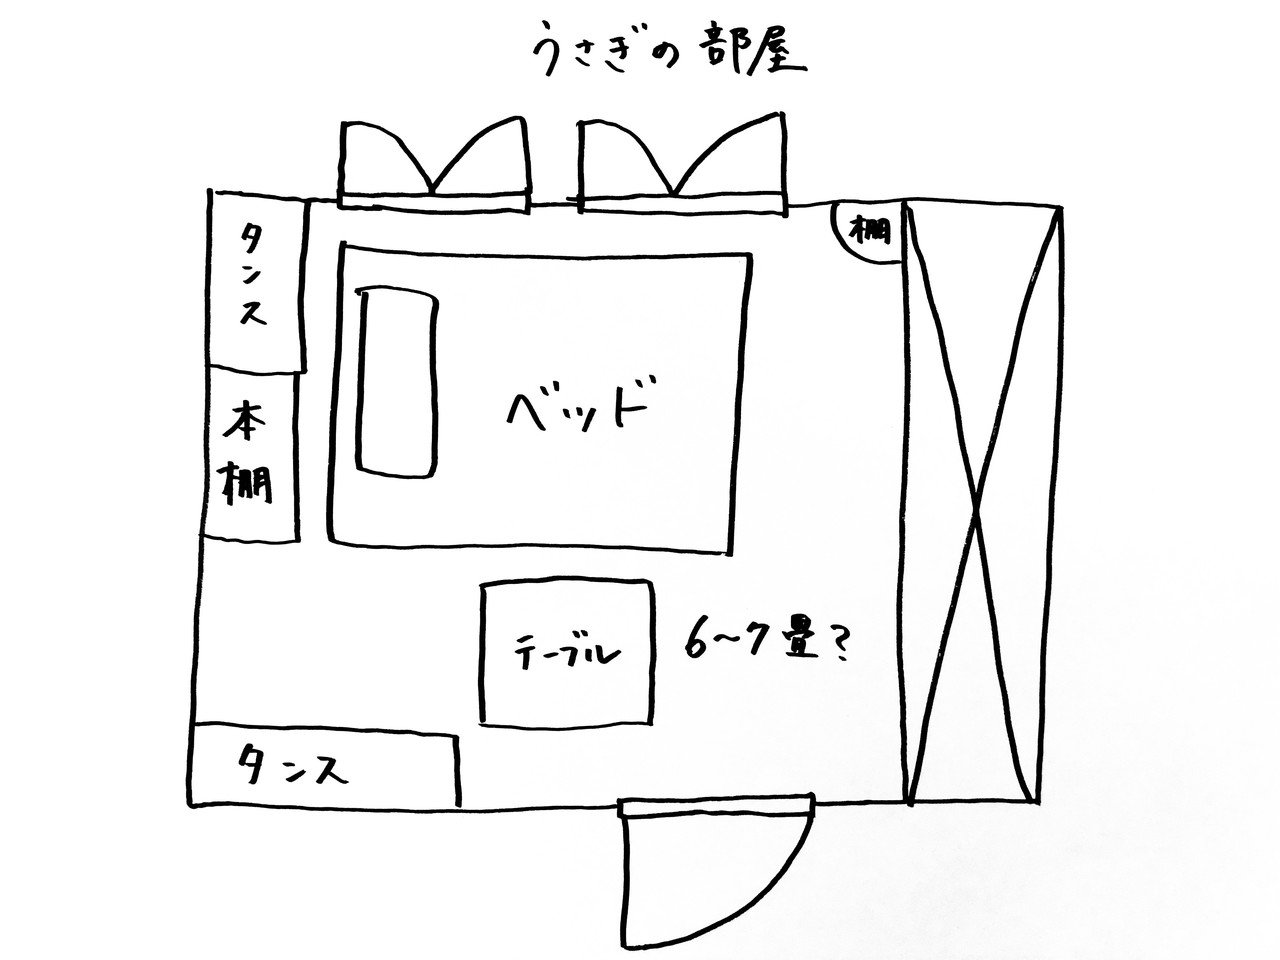 うさぎの部屋
タンス
棚
本棚
ベッド
テーブル
6〜7畳?
タンス